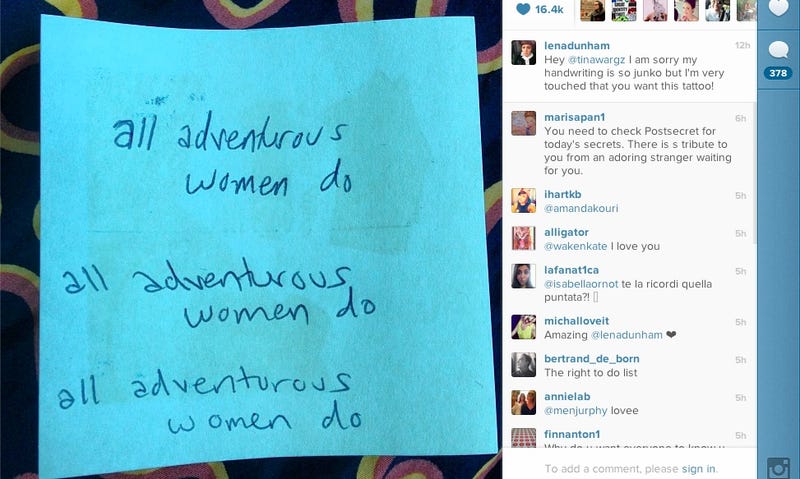 all adventurous
women do
all adventurous
women do
all adventurous
women do
16.4k
lenadunham 12h
Hey @tinawargz I am sorry my
handwriting is so junko but I'm very
touched that you want this tattoo!
378
marisapan1 6h
You need to check Postsecret for
today's secrets. There is s tribute to
you from an adoring stranger waiting
for you.
ihartkb 5h
@amandakouri
alligator 5h
@wakenkate I love you
lafanat1ca 5h
@isabellaornot te la ricordi quella
puntata?!
michalloveit 5h
Amazing @lenadunham ❤
bertrand_de_born 5h
The right to do list
annielab 5h
@menjurphy lovee
finnanton1 5h
Why do u want everyone to know u
To add a comment, please sign in.